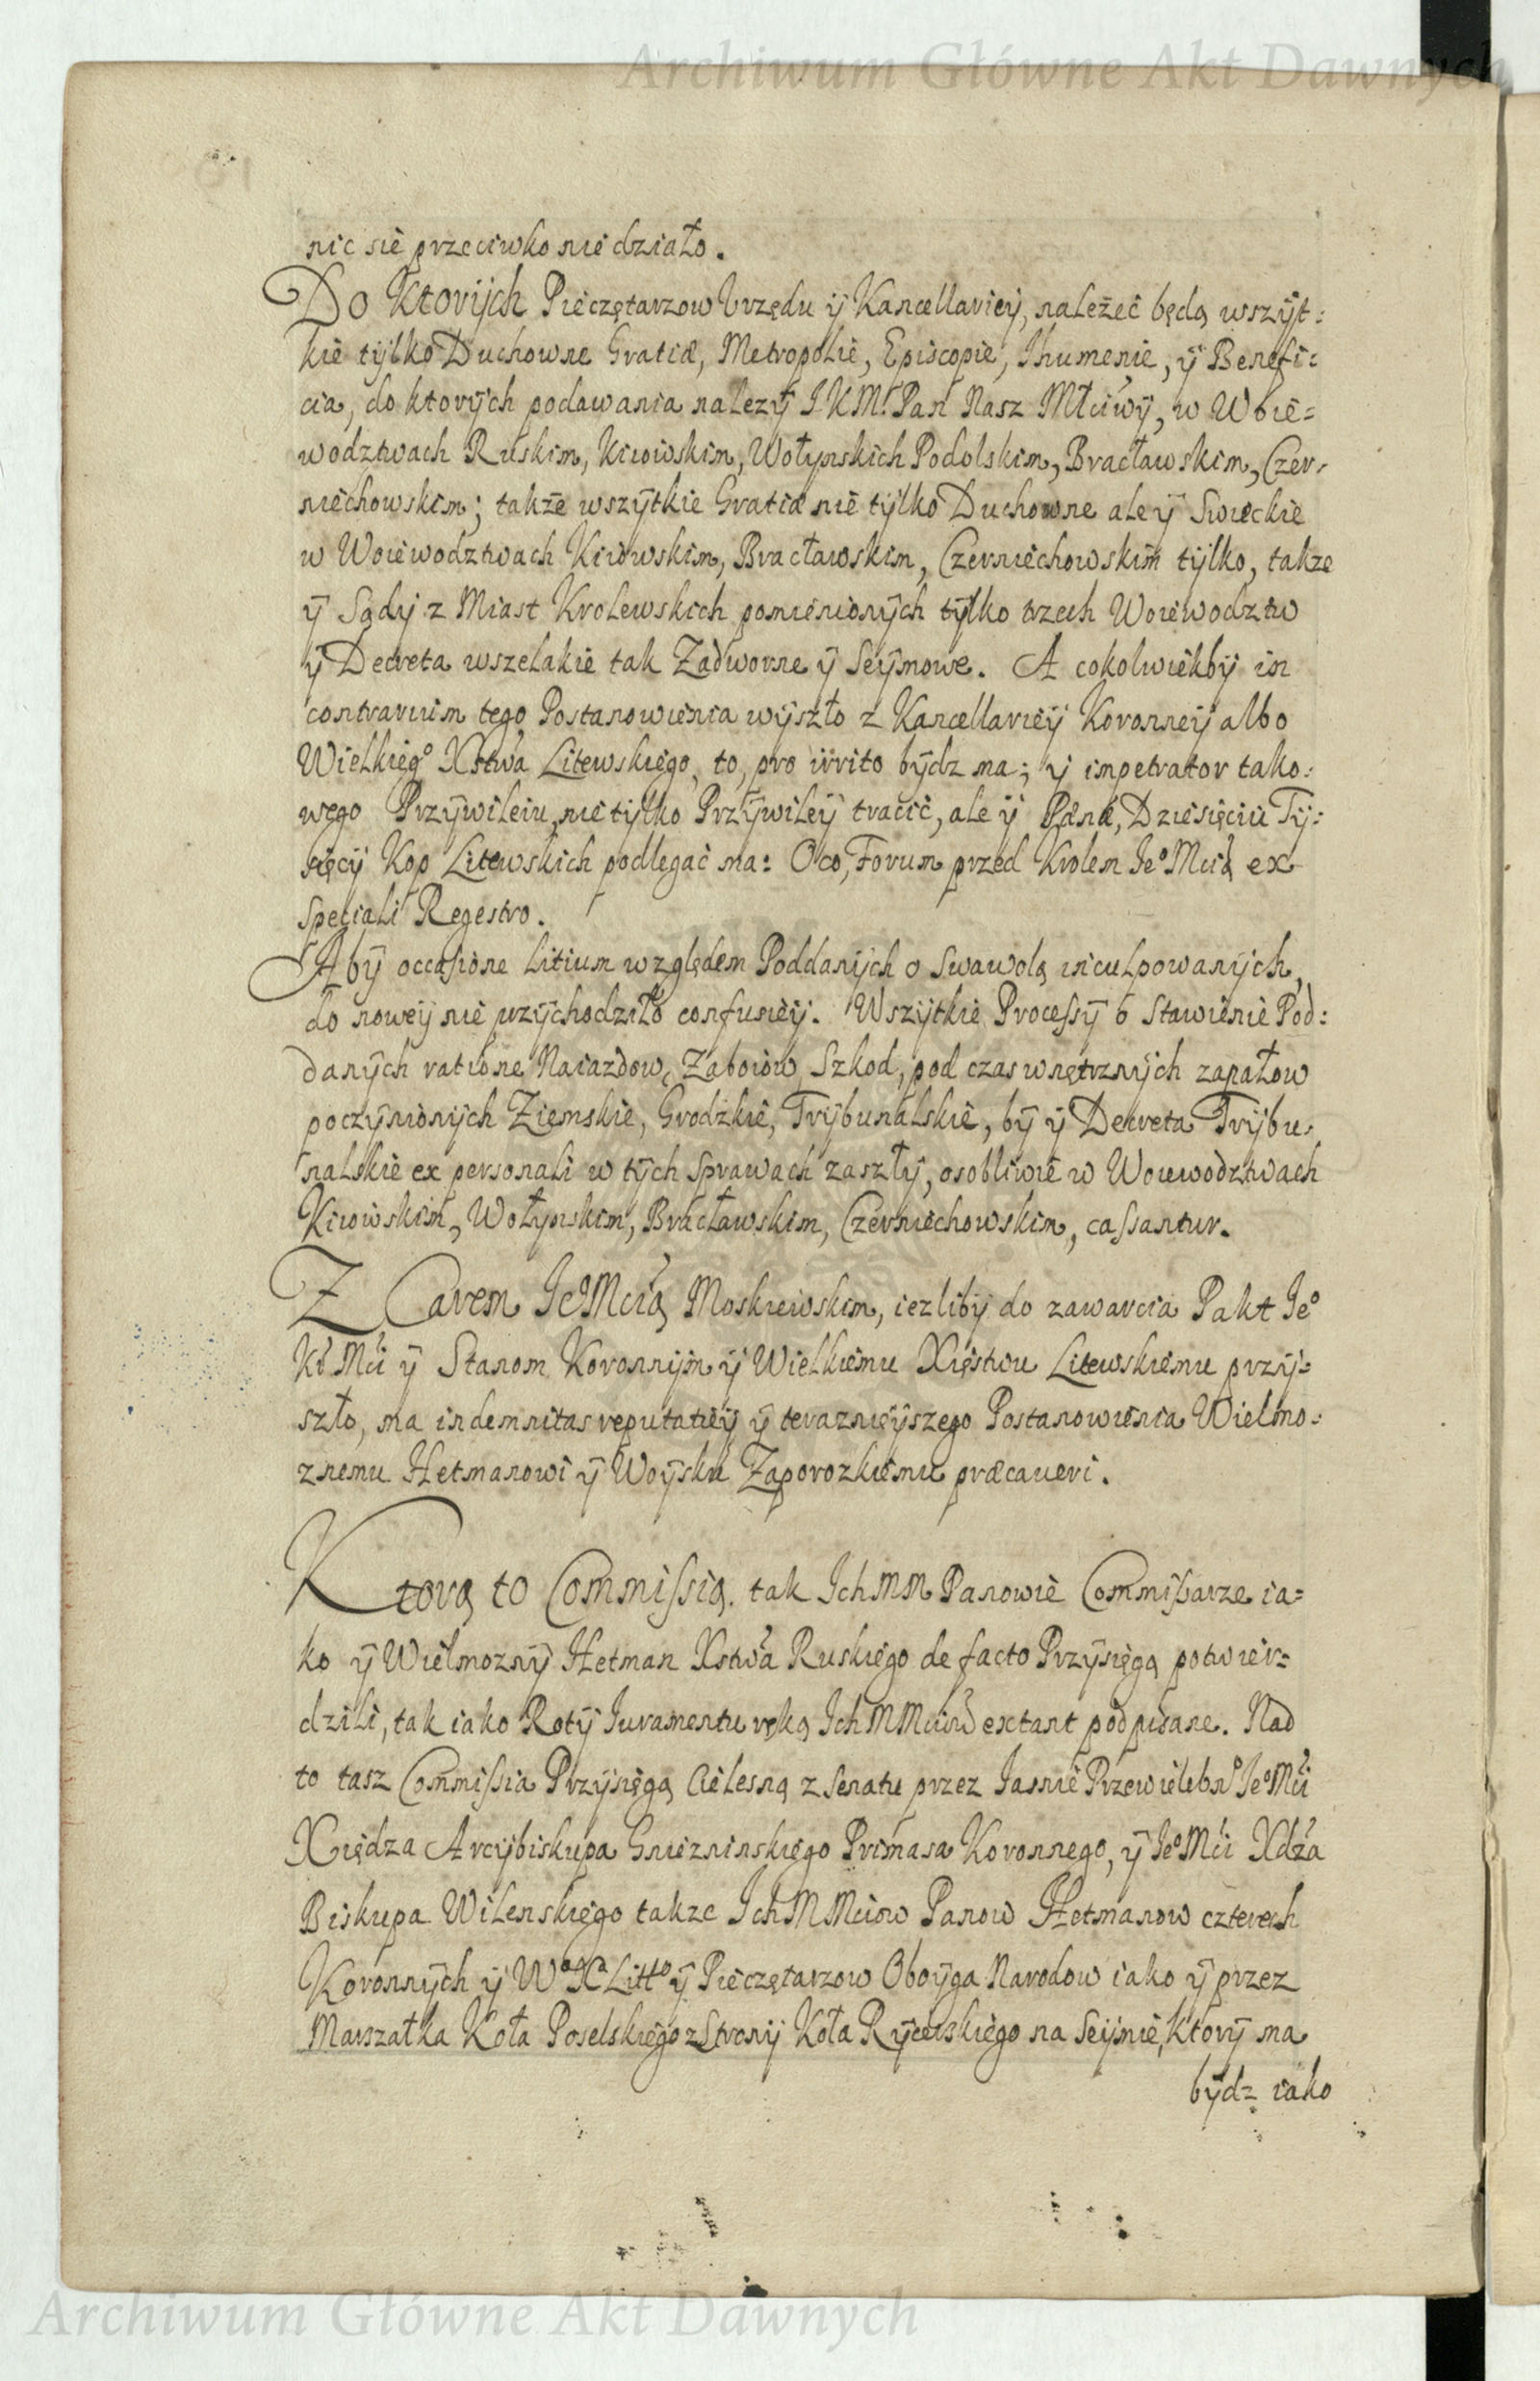 Archiwum Główne Akt Dawnych
nic sie przeciwko nie działo.
Do Ktorÿch Pieczętarzow Vrzędu ÿ Kancellariey, nalezeć będą wszÿt:
kie tÿlko Duchowne Gratiæ, Metropolie, Episcopie, Ihumenie, ÿ Benefi:
cia, do ktorÿch podawania nalezÿ I K M. Pan Nasz Młćiwÿ, w Woie=
wodztwach Ruskim, Kiiowskim, Wołynskich Podolskim, Bracławskim, Czer,
niechowskim; także wszÿtkie Gratiæ nie tÿlko Duchowne ale ÿ Swieckie
w Woiewodztwach Kiiowskim, Bracławskim, Czerniechowskim tÿlko, takze
ÿ Sądÿ z Miast Krolewskich pomienionÿch tÿlko trzech Woiewodztw
ÿ Decreta wszelakie tak Zadworne ÿ Seÿmowe. A cokolwiekbÿ in
contrarium tego Postanowienia wÿszło z Kancellarieÿ Koronneÿ albo
Wielkiegº Xstwa Litewskiego, to, pro irrito bÿdz ma; ÿ impetrator tako:
wego Przÿwileiu, nie tÿlko Przÿwileÿ tracić, ale ÿ Pænæ, Dziesięciu Tÿ:
sięcÿ Kop Litewskich podlegać ma: Oco, Forum przed Krolem Jeº Mcią ex
Speciali Regestro.
Abÿ occasione Litium względem Poddanÿch o Swawolą inculpowanÿch,
do noweÿ nie przÿchodziło confusieÿ. Wszÿtkie Processÿ o Stawienie Pod:
danÿch ratione Naiazdow, Zaboiow, Szkod, pod czas wnętrznÿch zapałow
poczÿnionÿch Ziemskie, Grodzkie, Trÿbunalskie, bÿ ÿ Decreta Trÿbu,
nalskie ex personali w tÿch sprawach zaszłÿ, osobliwie w Woiewodztwach
Kiiowskim, Wołynskim, Bracławskim, Czerniechowskim, cassantur.
Z Carem JeºMcią Moskiewskim, iezlibÿ do zawarcia Pakt Jeº
Kr Mći ÿ Stanom Koronnÿm ÿ Wielkiemu Xięstwu Litewskiemu przÿ:
szło, ma indemnitas reputatieÿ ÿ teraznieÿszego Postanowienia Wielmo:
znemu Hetmanowi ÿ Woÿsku Zaporozkiemu præcaueri.
Ktorą to Commissią tak Ich MM Panowie Commissarze ia=
ko ÿ Wielmoznÿ Hetman Xstwa Ruskiego de facto Przÿsięgą potwier=
dzili, tak iako Rotÿ Iuramentu ręką Ich MMciow extant podpisane. Nad
to tasz Commissia Przÿsięgą Cielesną z Senatu przez Jasnie Przewielebnº Jeº Mći
Xiędza Arcÿbiskupa Gniezninskiego Primasa Koronnego, ÿ Jeº Mći Xdza
Biskupa Wilenskiego takze Ich MMciow Panow Hetmanow czterech
Koronnÿch ÿ Wº Xª Littº ÿ Pieczętarzow Oboÿga Narodow iako ÿ przez
Marszałka Koła Poselskiego z Stronÿ Koła Rÿcerskiego na Seÿmie, ktorÿ ma
bÿdz iako
Archiwum Główne Akt Dawnych